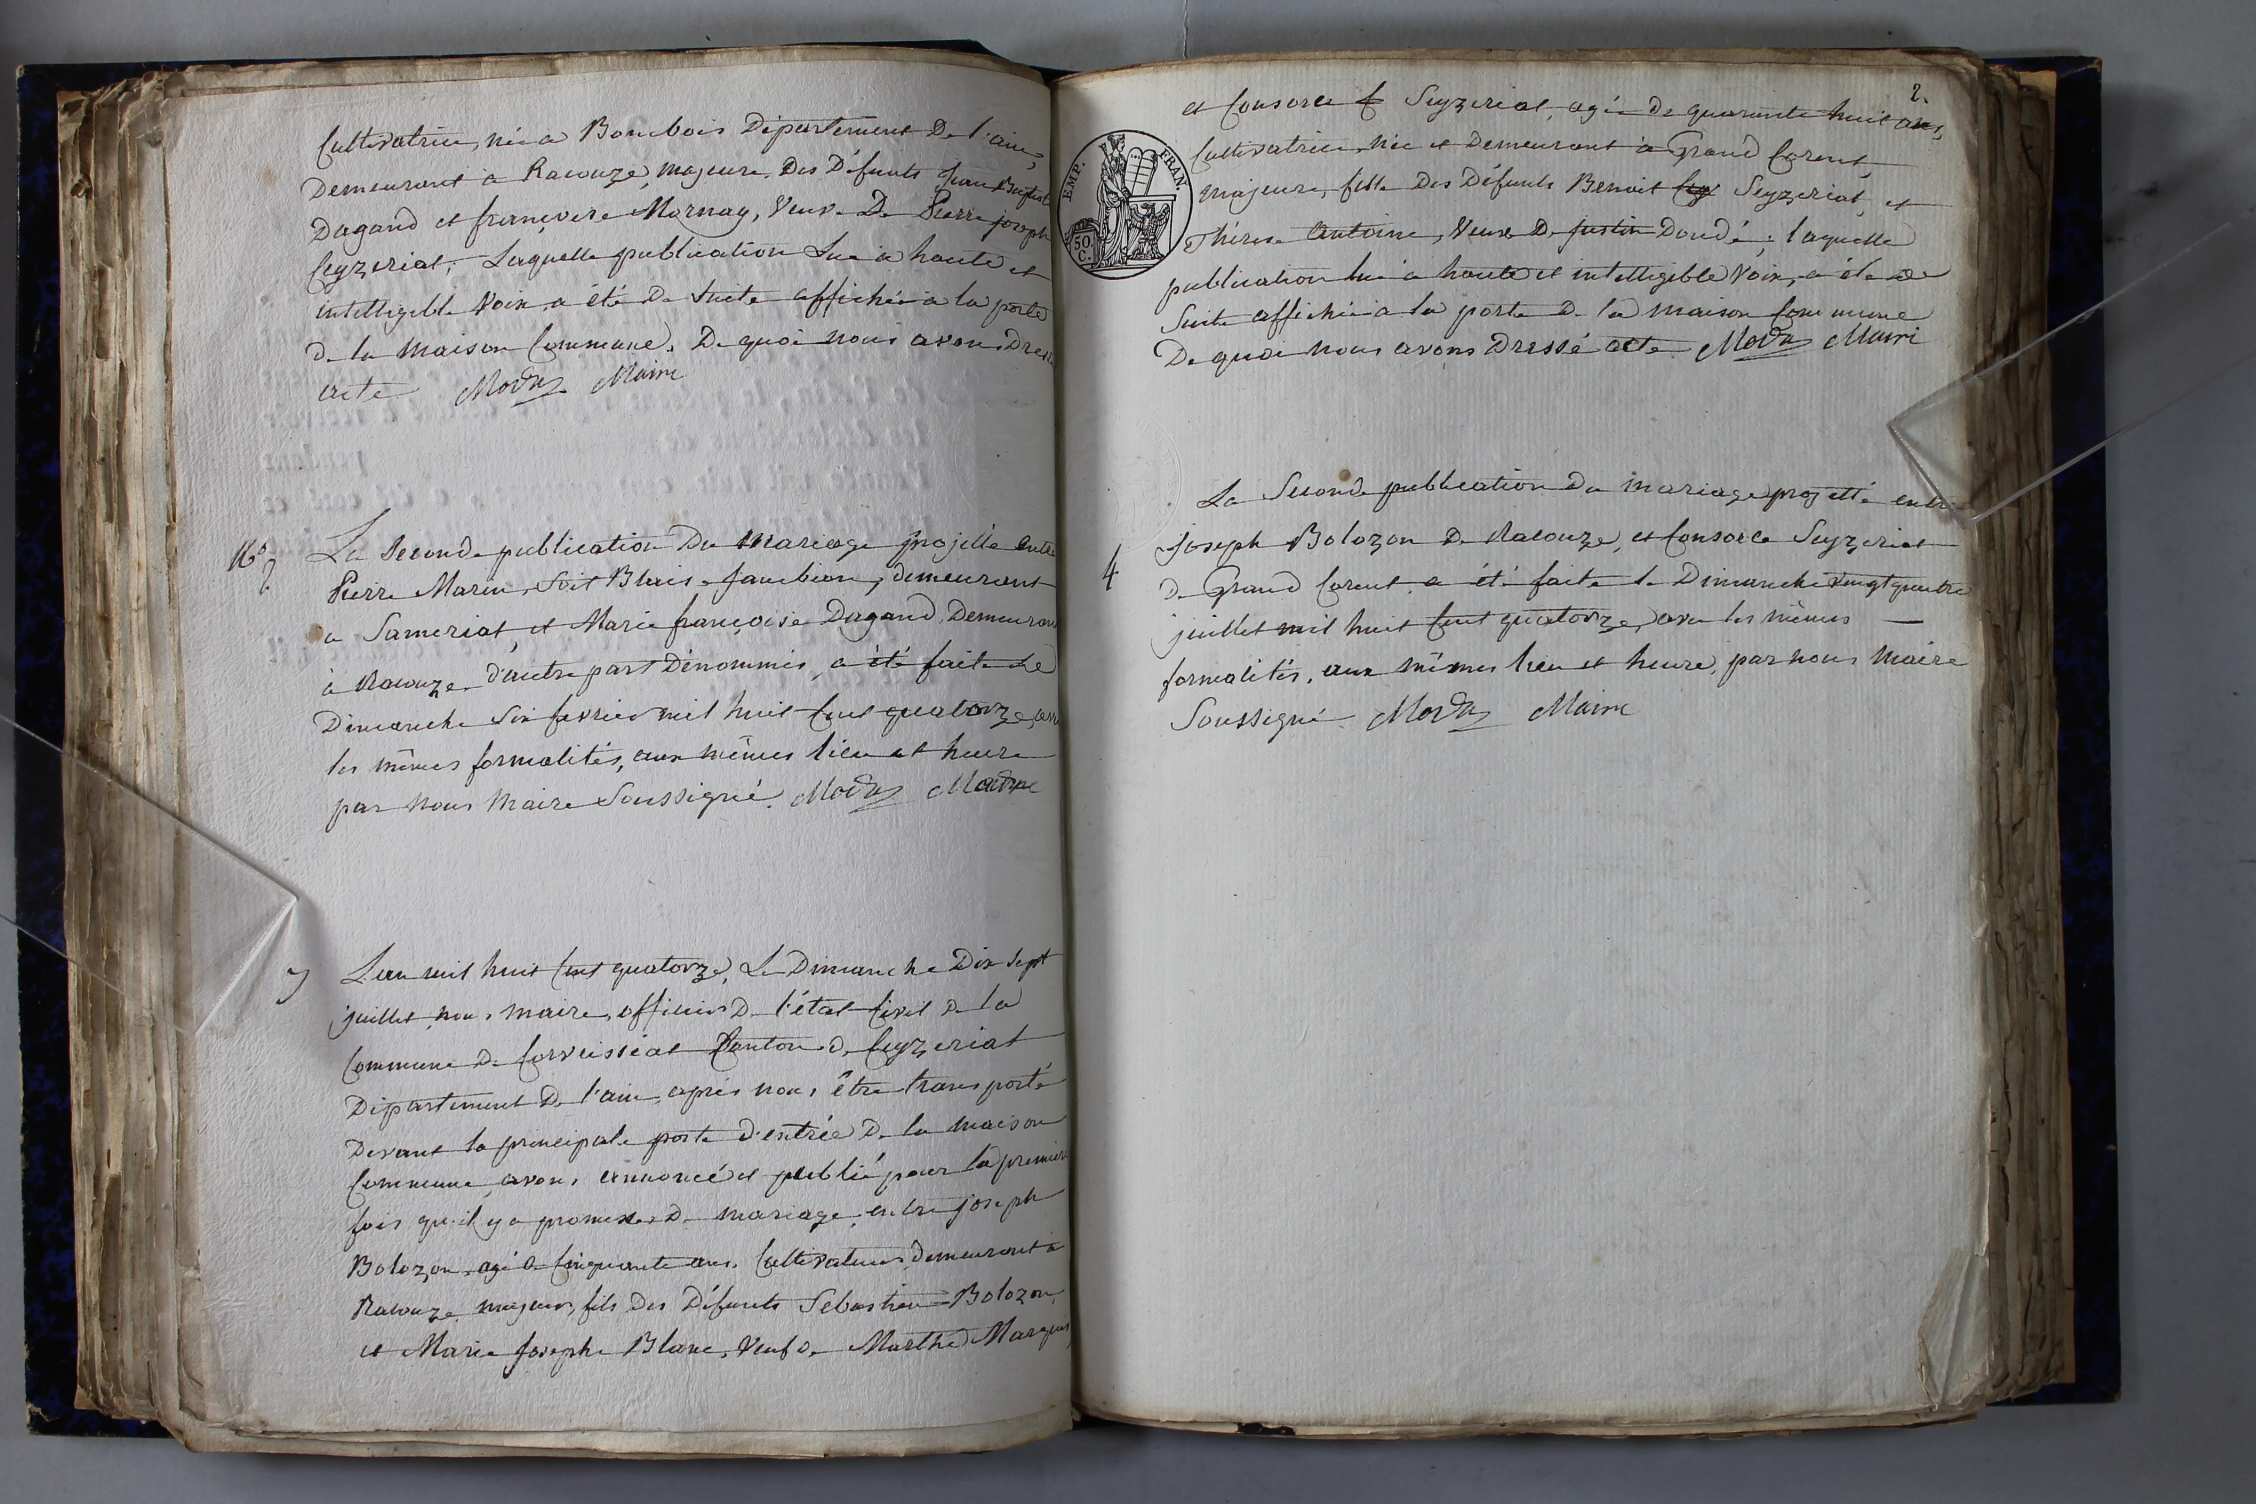 Cultivatrice, née a Bombois Département De l'ain,
Demeurant a Racouze, majeure, Des Défunts Jean Baptiste
Dagand et françoise Mornay, Veuve De Pierre joseph
Ceyzeriat; Laquelle publication Lue a haute et
intelligible Voix, a été De Suite affichée a la porte
De la Maison Commune, De quoi nous avons Dressé
acte Maire
N° 2
La Seconde publication Du Mariage projetté entre
Pierre Marin, Soit Blaise demeurant
a Sameriat, et Marie françoise Dagand, Demeurant
à Racouze, d'autre part Dénommés, a été faite Le
Dimanche Six fevrier mil huit Cent quatorze, avec
les mêmes formalités, aux mêmes lieu et heure
par Nous Maire Soussigné. Maire
3
L'an mil huit Cent quatorze, Le Dimanche Dix Sept
juillet, nous maire, officier De l'état Civil De la
Commune De Corveissiat Canton de Ceyzeriat
Département De l'ain, après nous être transporté
Devant la principale porte D'entrée De la maison
Commune, avons annoncé et publié pour la premiere
fois qu'il y a promesse De mariage entre joseph
Bolozon, agé De Cinquante ans, Cultivateur, Demeurant a
Racouze, majeur, fils Des Défunts Sebastien Bolozon,
et Marie Josephe Blanc, Veuf De Marthe
2.
et Consorce Seyzeriat, agée De quarante huit ans,
Cultivatrice, née et Demeurant à Grand Corent,
majeure, fille Des Défunts Benoit Seyzeriat, et
Thérèse Antoine, Veuve De justin Doudé; laquelle
publication lue a haute et intelligible Voix, a été De
Suite affichée a la porte De la maison Commune
De quoi nous avons Dressé acte. Maire
EMP. FRAN
50.
C.
La Seconde publication Du mariage projetté entre
4
joseph Bolozon De Racouze, et Consorce Seyzeriat
De Grand Corent, a été faite le Dimanche Vingt quatre
juillet mil huit Cent quatorze, avec les mêmes
formalités, aux mêmes lieu et heure, par nous Maire
Soussigné. Maire